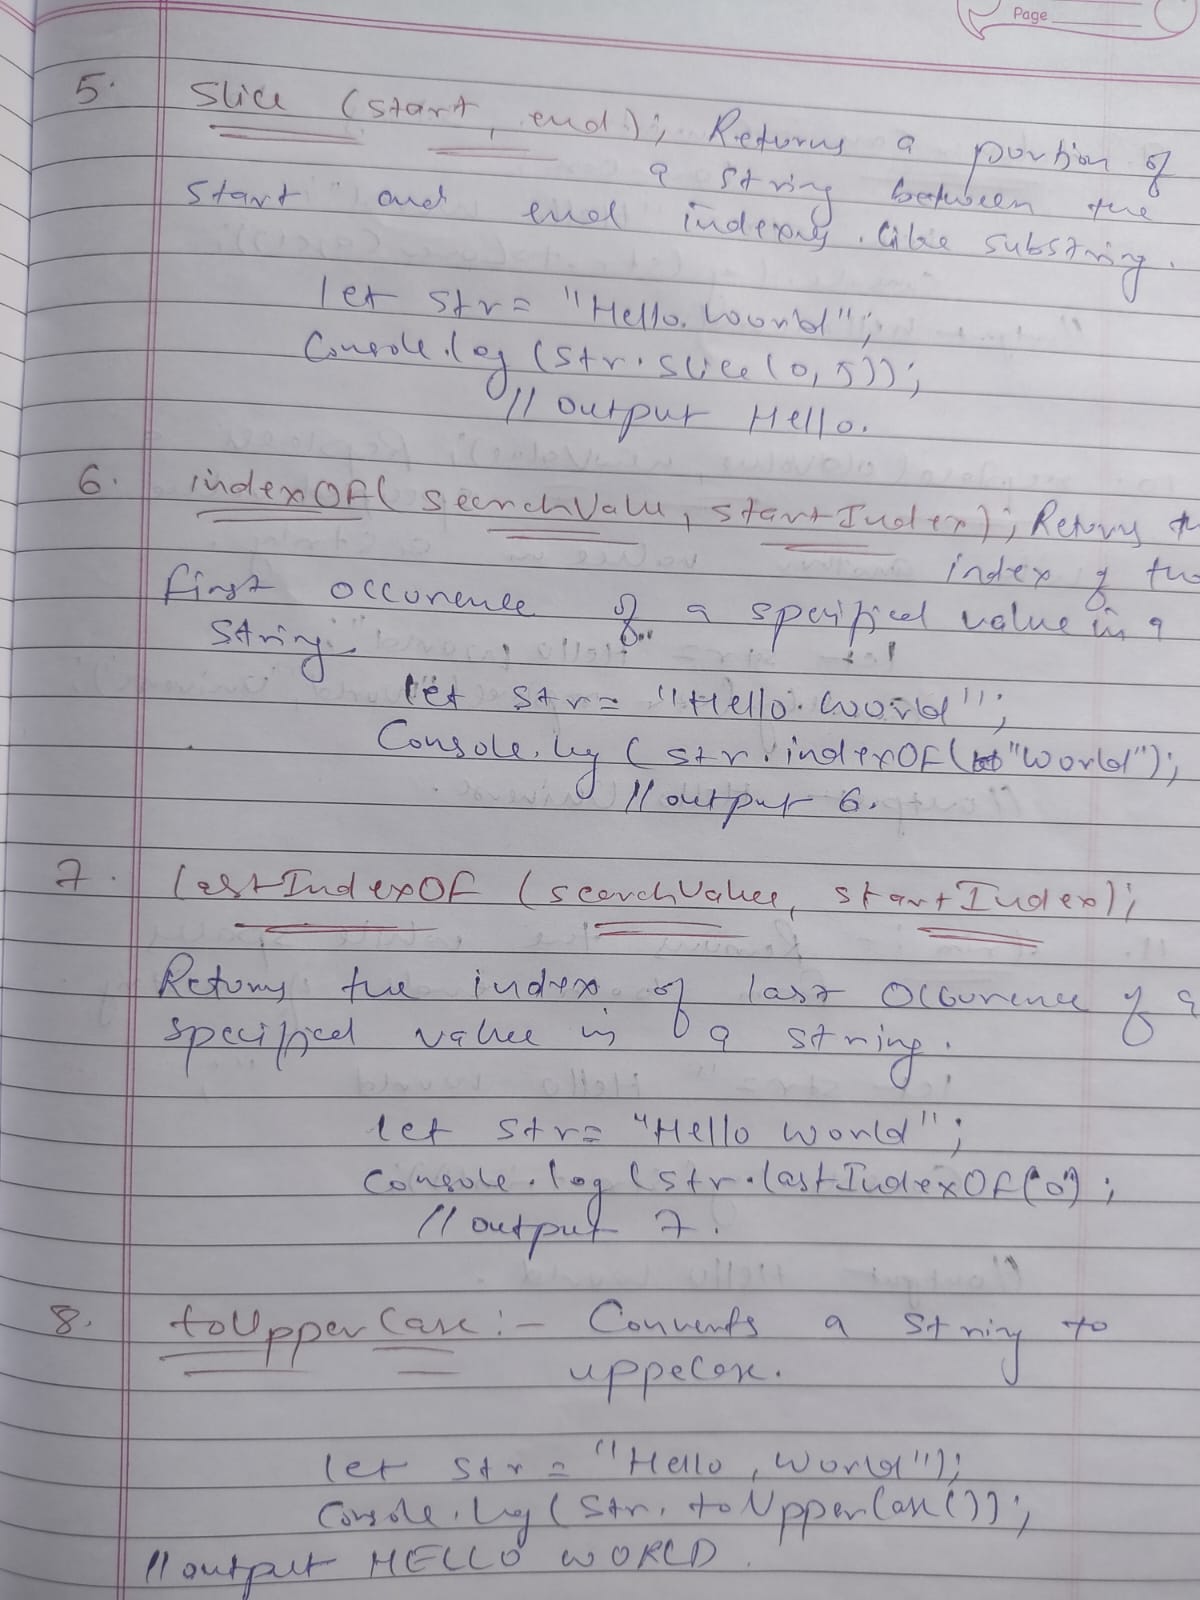 Page
5. Slice (start, end); Returns a portion of
a string between the
start and end indexes. like substring.
let str = "Hello. World";
Console.log (str.slice(0,5));
// output Hello.
6. indexOF( searchValue, startIndex); Returns the
index of the
first occurence of a specified value in a
string.
let str = "Hello. World";
Console.log ( str.indexOF("World");
// output 6.
7. lastIndexOF (searchValue, startIndex);
Returns the index of last Occurence of a
specified value in a string.
let str = "Hello World";
Console.log (str.lastIndexOF("o");
// output 7.
8. toUpperCase :- Converts a string to
uppecase.
let str = "Hello, World");
Console.log (Str.toUpperCase());
// output HELLO WORLD.